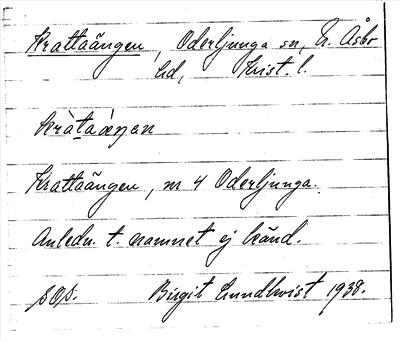 Krattaängen, Oderljunga sn, N. Åsbo
hd, Krist. l.
kràtaǽŋan
Krattaängen, nr 4 Oderljunga.
Anledn. t. namnet ej känd.
SOS. Birgit Lundkvist 1938.